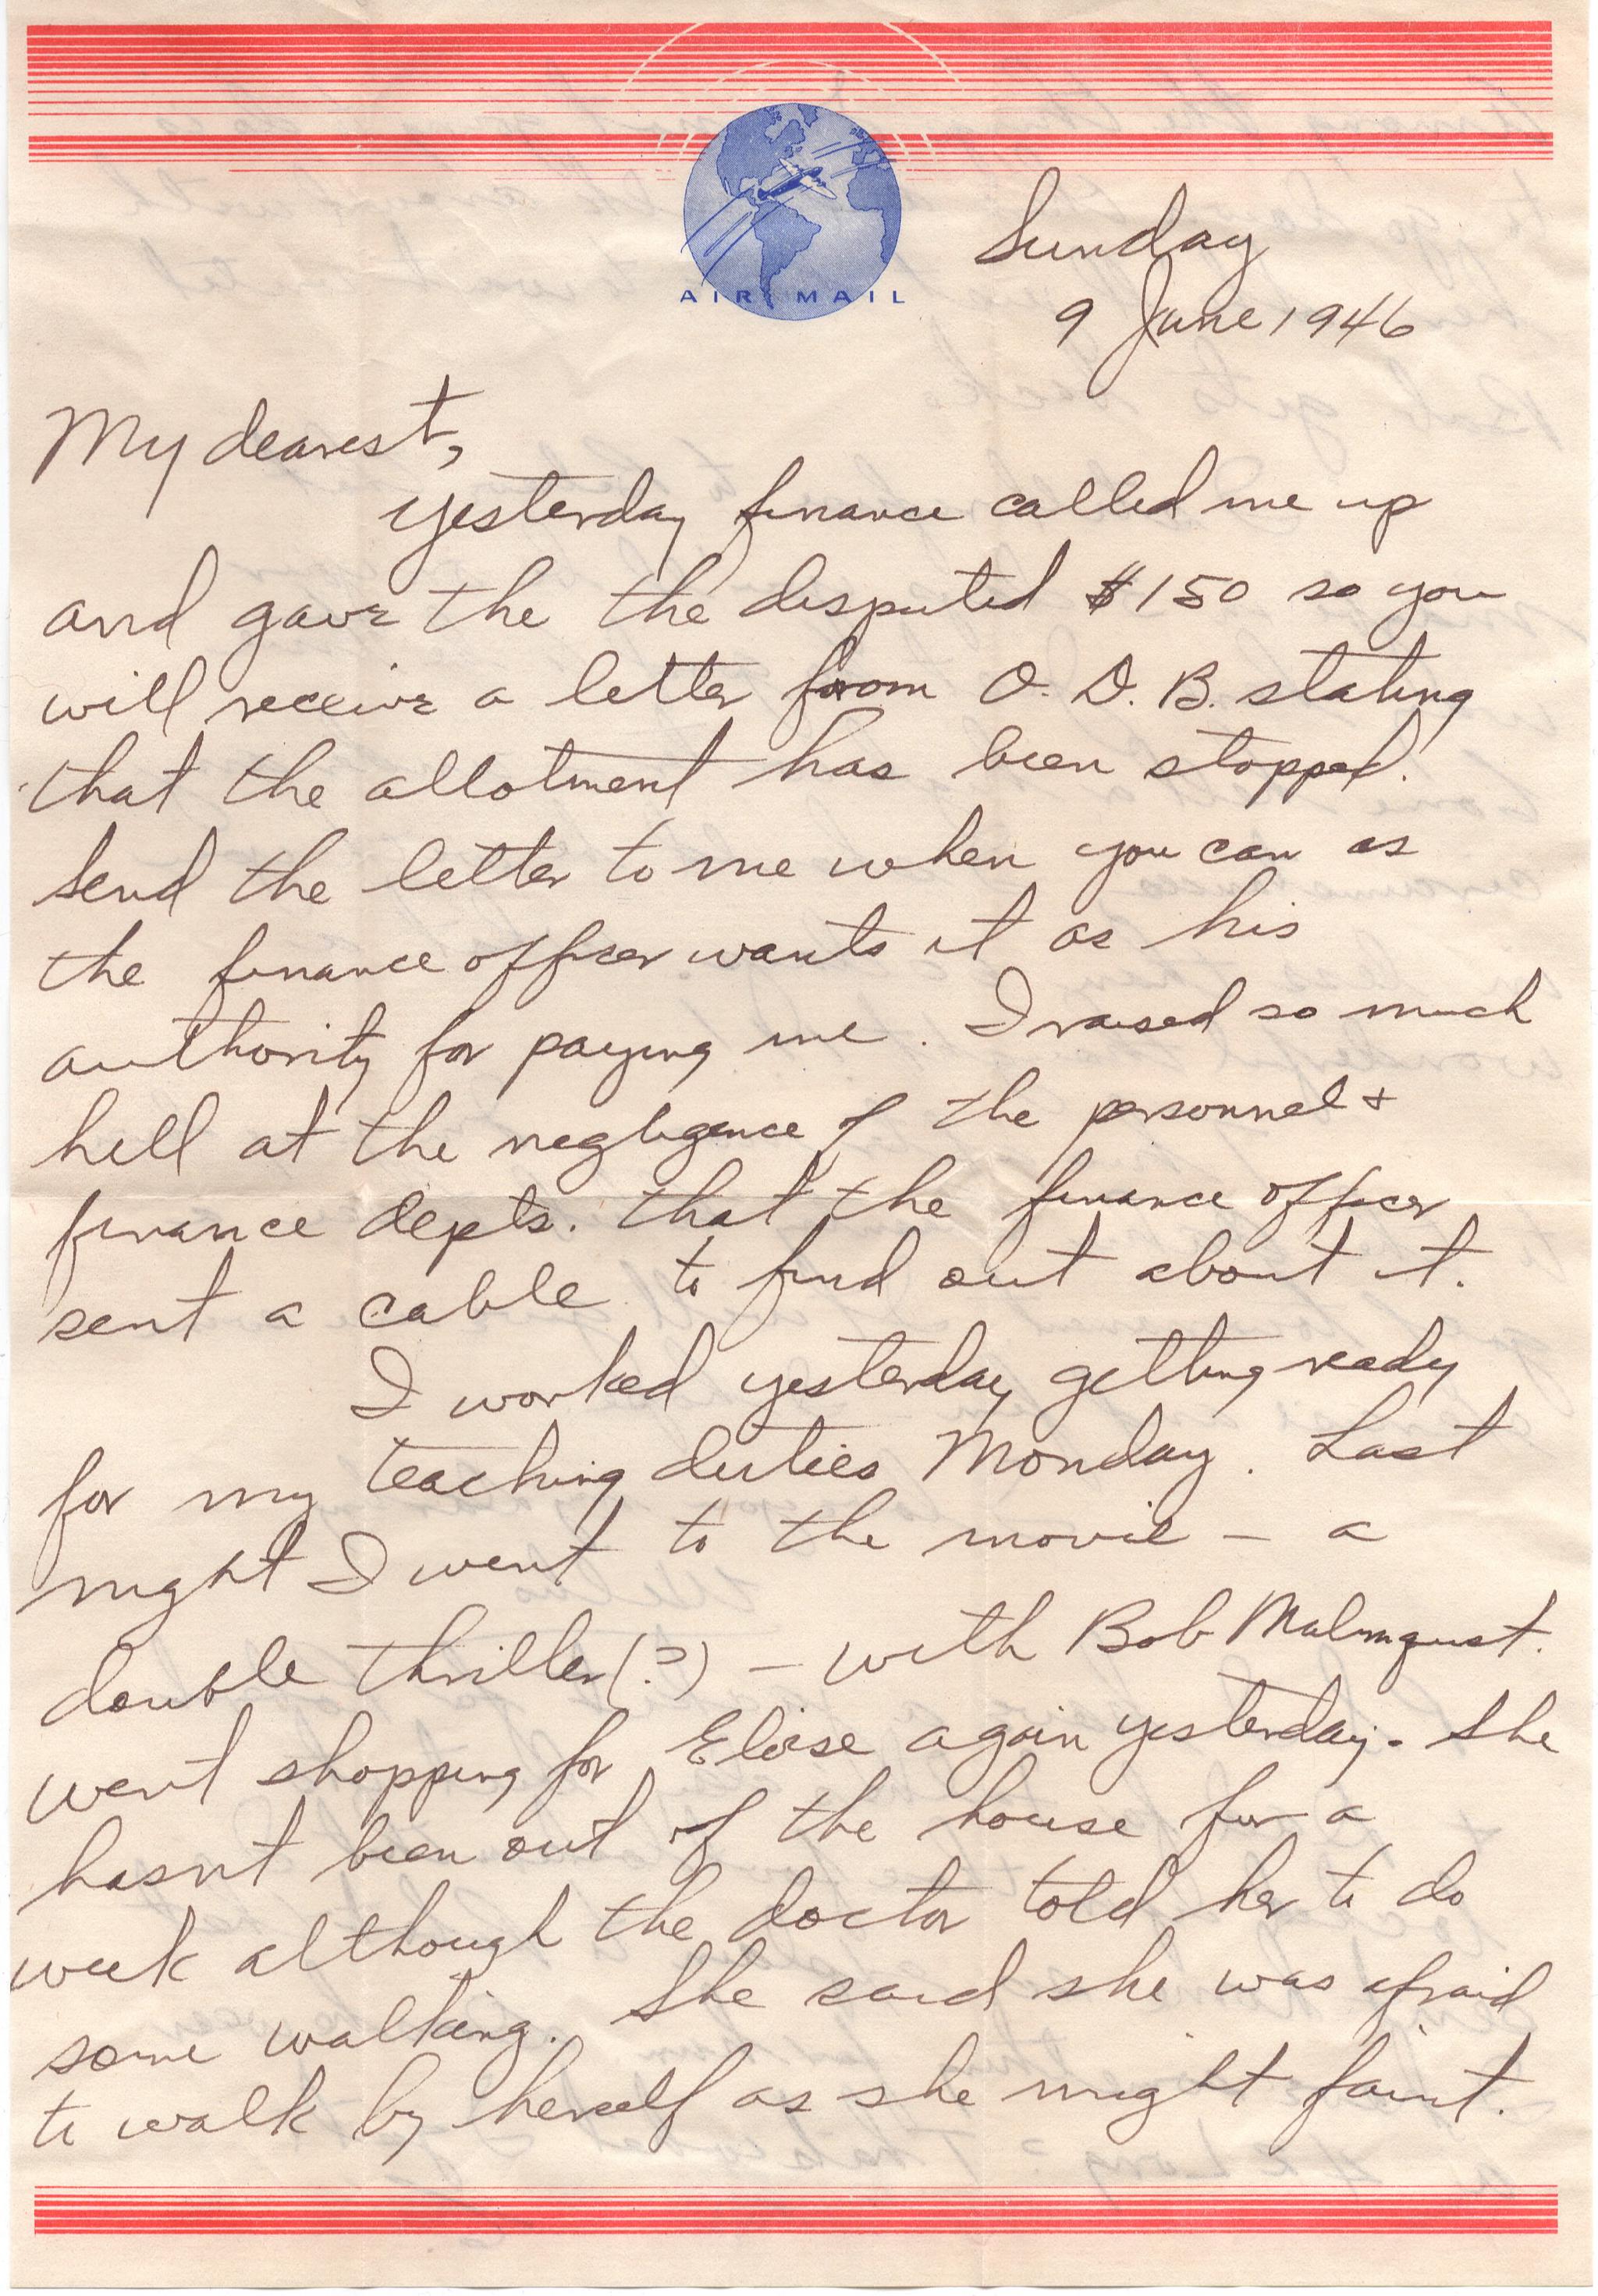 AIR MAIL
Sunday
9 June 1946
My dearest,
Yesterday finance called me up
and gave the the disputed $150 so you
will receive a letter from O. D. B. stating
that the allotment has been stopped.
Send the letter to me when you can as
the finance officer wants it as his
authority for paying me. I raised so much
hell at the negligence of the personnel +
finance depts. that the finance officer
sent a cable to find out about it.
I worked yesterday getting ready
for my teaching duties Monday. Last
night I went to the movie – a
double thriller (?) – with Bob Malmquist.
went shopping for Eloise again yesterday. She
hasnt been out of the house for a
week although the doctor told her to do
some walking. She said she was afraid
to walk by herself as she might faint.